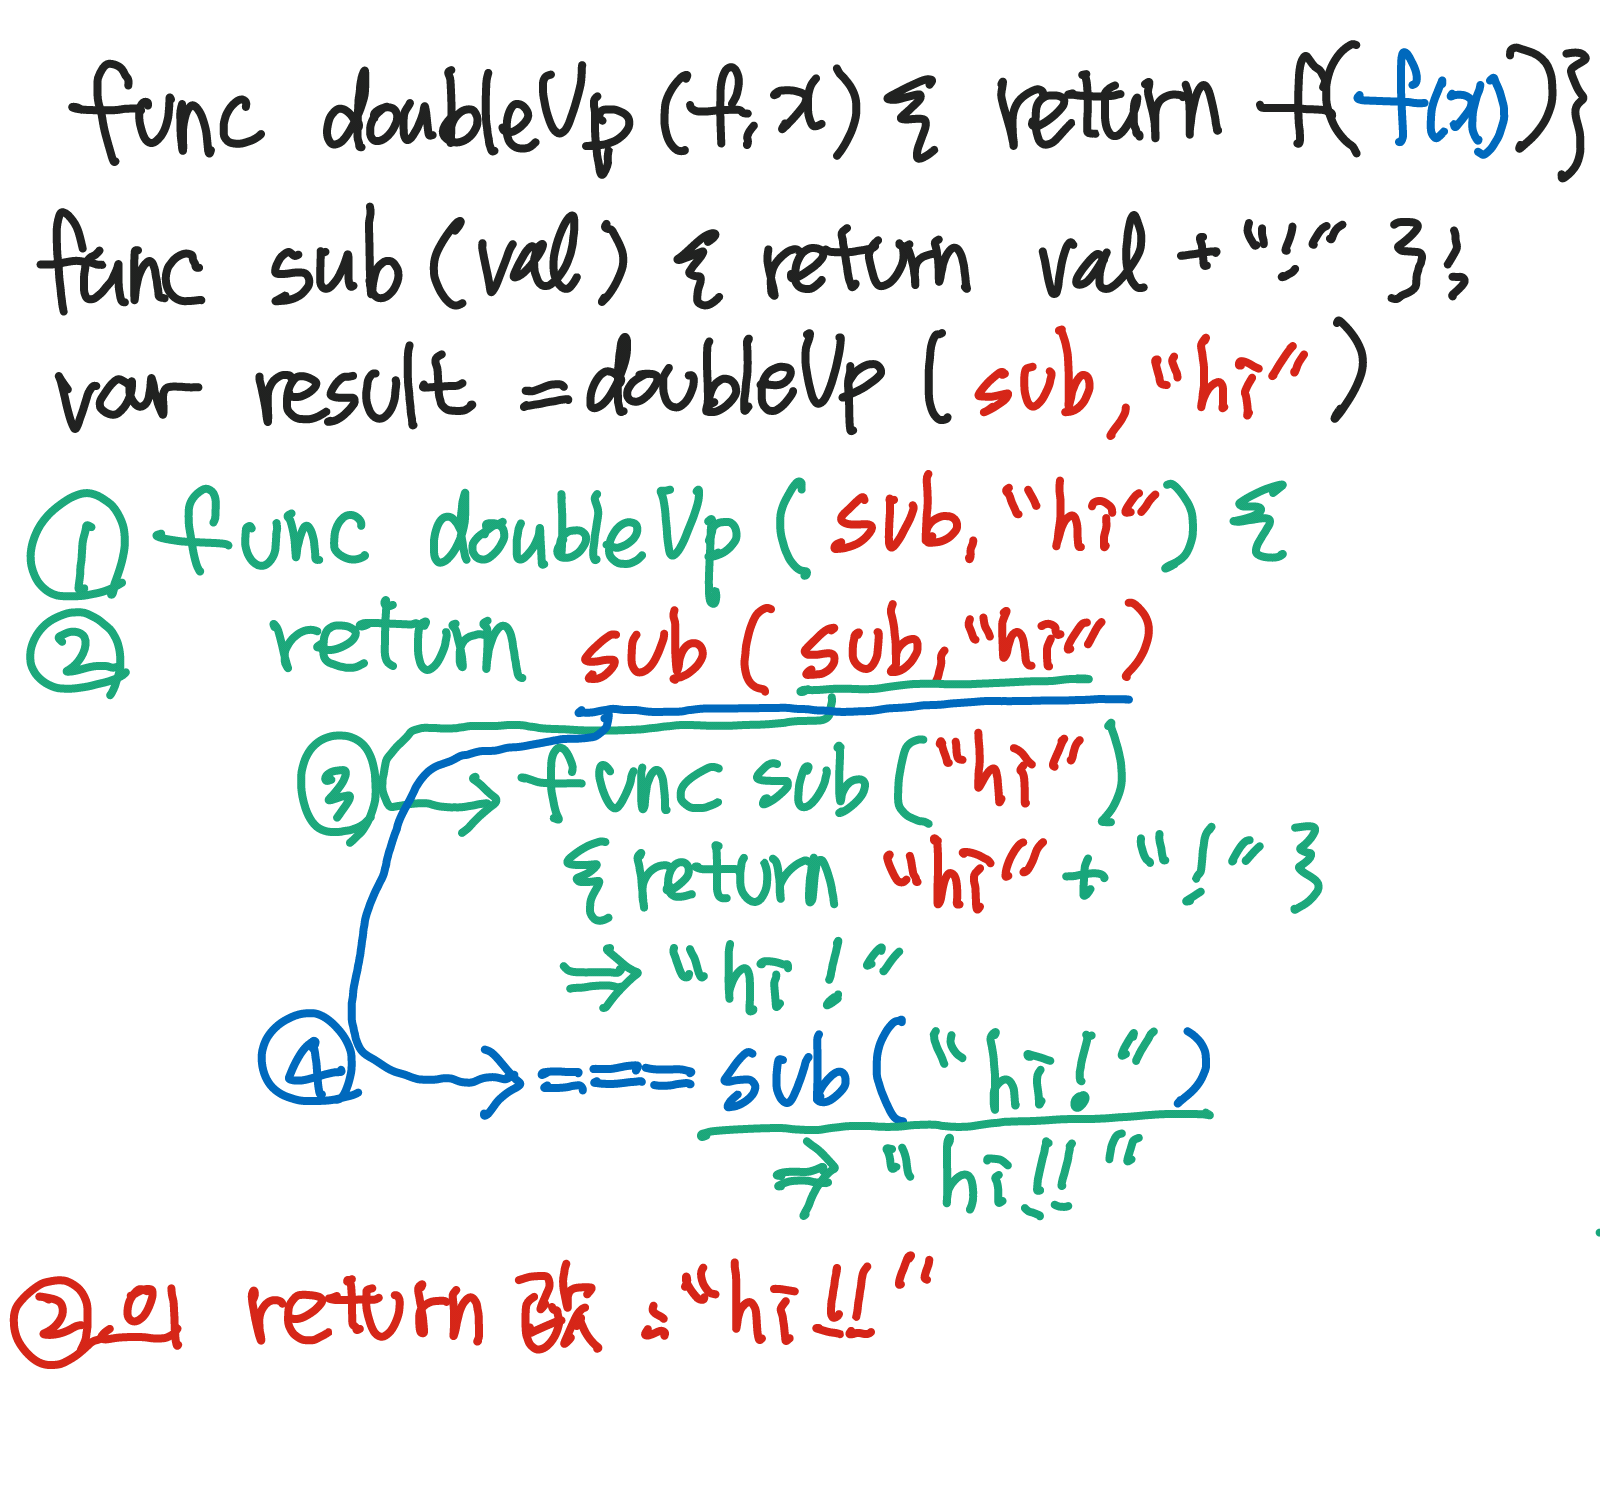 func doubleUp (f, x) { return f(f(x))}
func sub (val) { return val + "!" };
var result = doubleUp ( sub, "hi" )
① func doubleUp ( sub, "hi" ) {
② return sub ( sub, "hi" )
③ → func sub ( "hi" )
{ return "hi" + "!" }
⇒ "hi!"
④ → = = = = sub ( "hi!" )
⇒ "hi!!"
②의 return 값 : "hi!!"